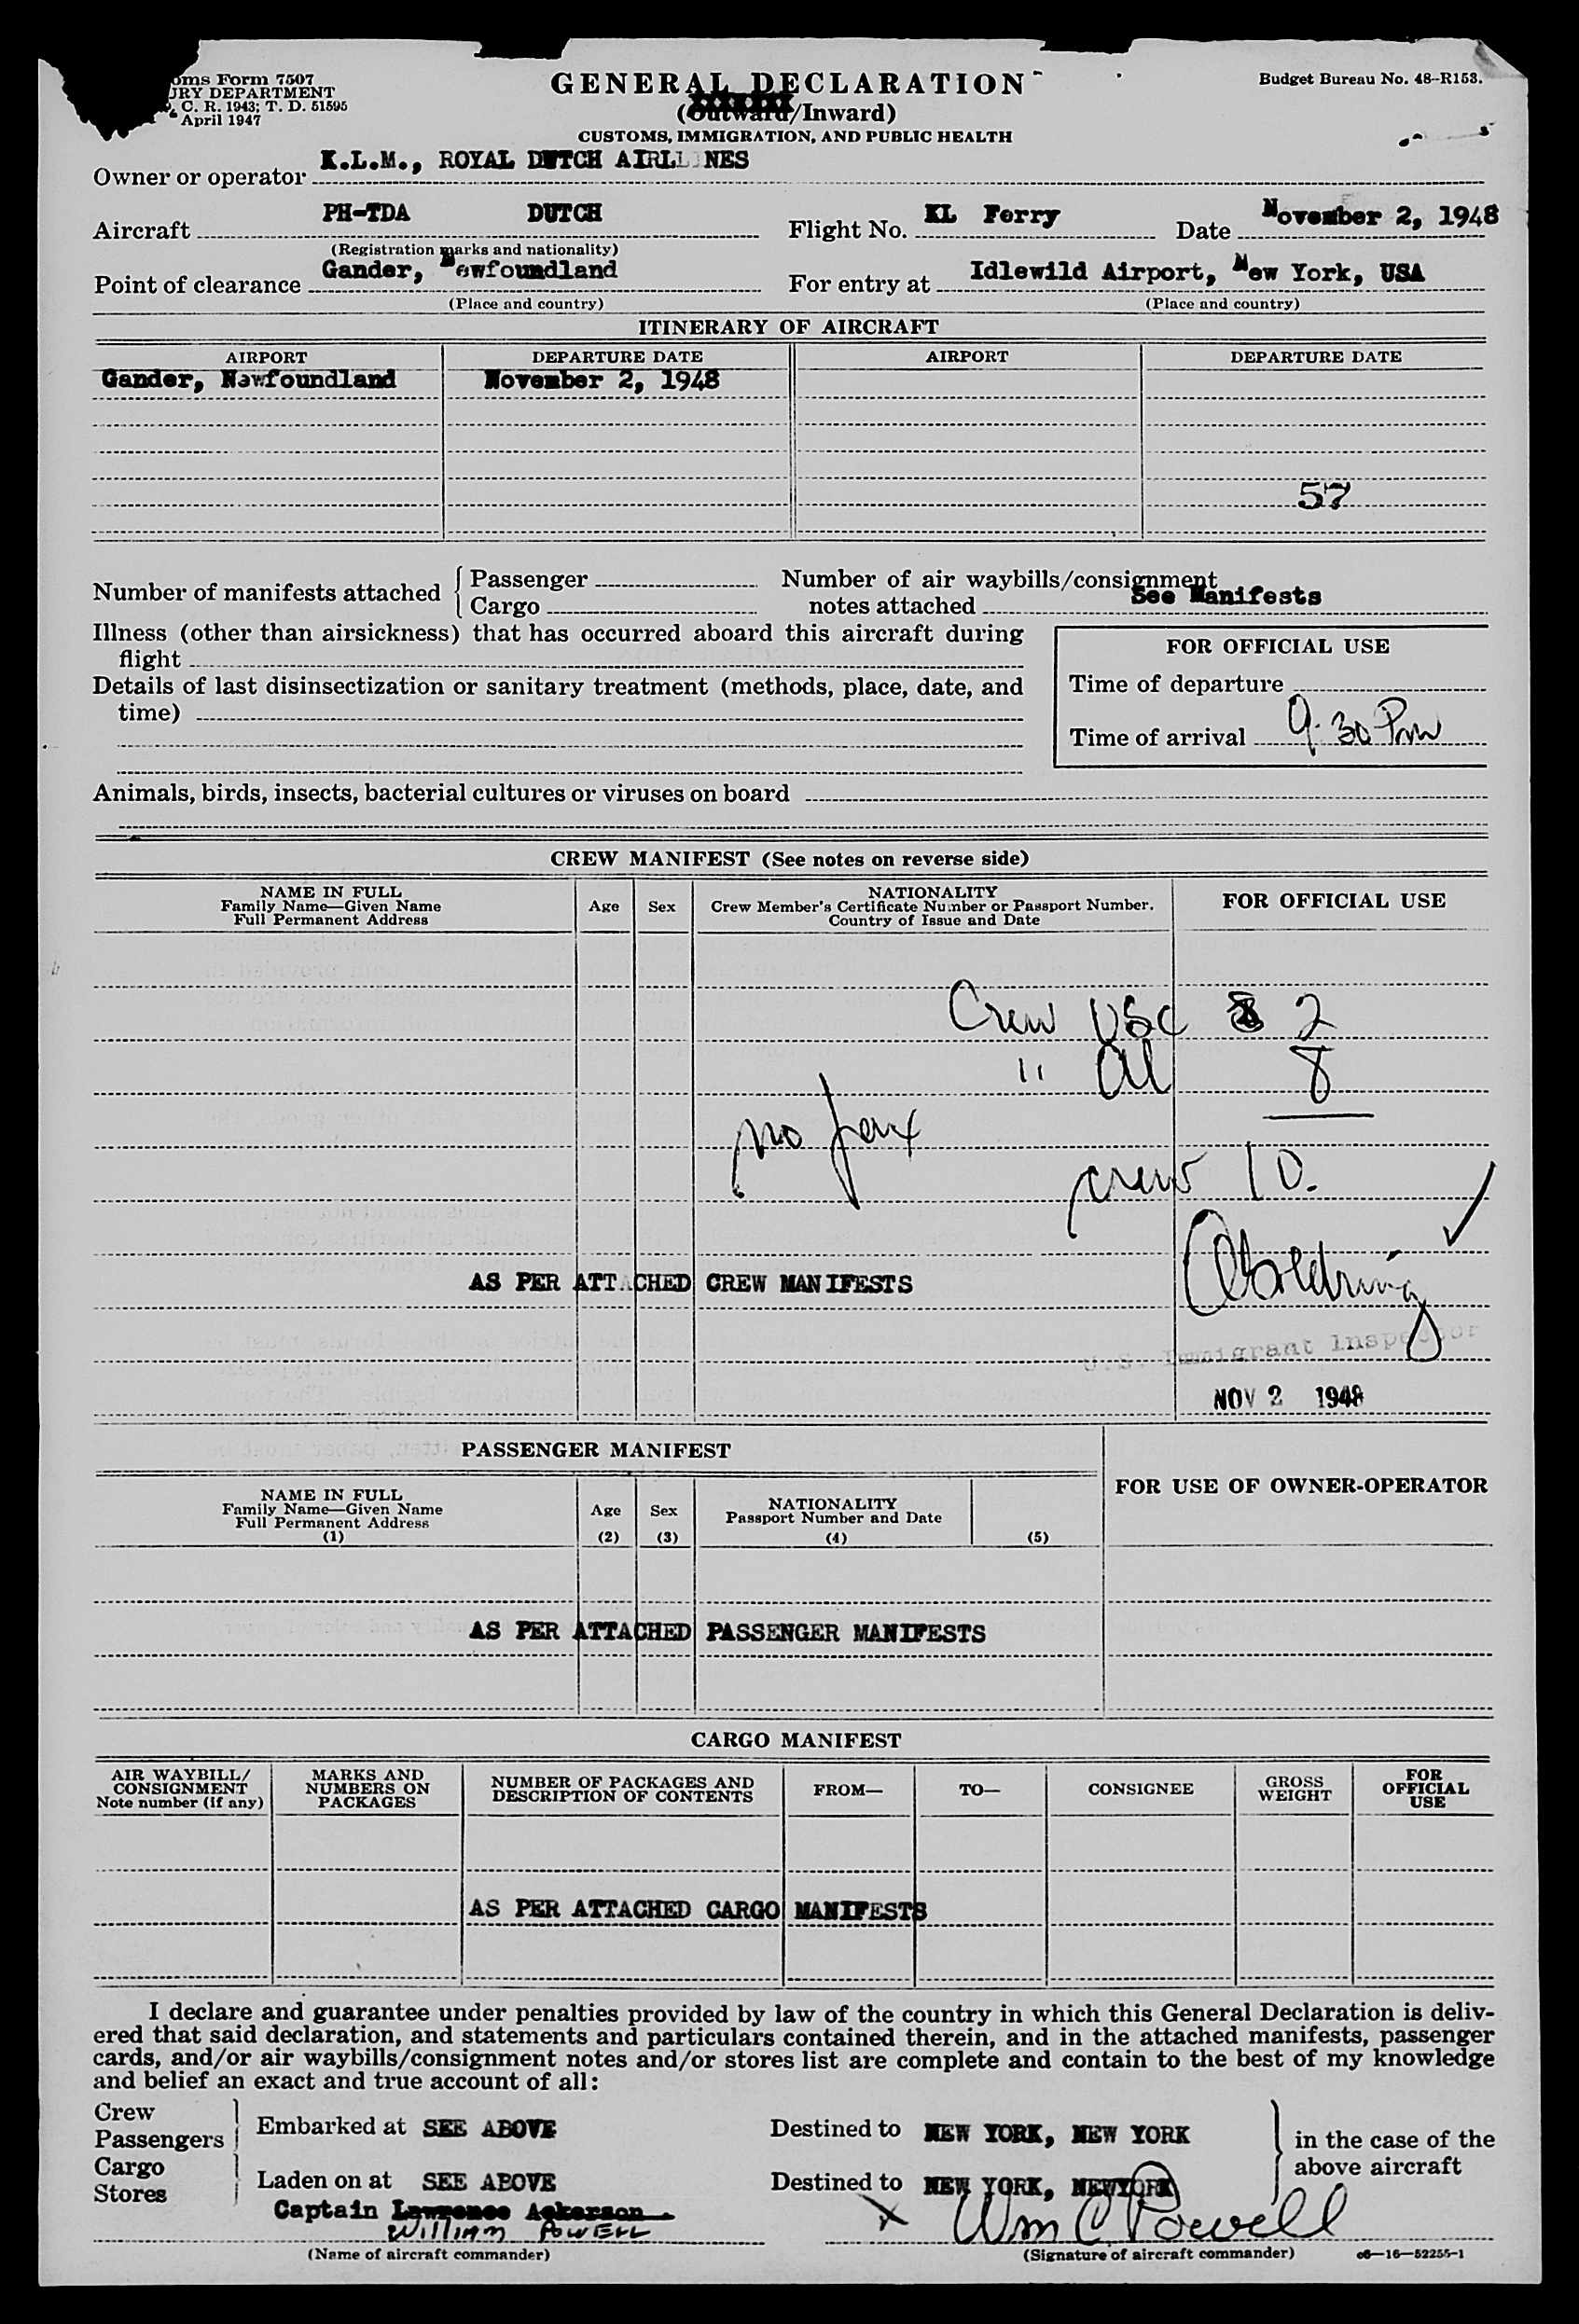 oms Form 7507
URY DEPARTMENT
C. R. 1943; T. D. 51595
April 1947
GENERAL DECLARATION
(Outward/Inward)
CUSTOMS, IMMIGRATION, AND PUBLIC HEALTH
Budget Bureau No. 48—R153.
Owner or operator K.L.M., ROYAL DUTCH AIRLINES
Aircraft PH-TDA DUTCH Flight No. KL Ferry Date November 2, 1948
(Registration marks and nationality)
Point of clearance Gander, Newfoundland For entry at Idlewild Airport, New York, USA
(Place and country) (Place and country)
ITINERARY OF AIRCRAFT
AIRPORT DEPARTURE DATE AIRPORT DEPARTURE DATE
Gander, Newfoundland November 2, 1948
57
Number of manifests attached { Passenger Number of air waybills/consignment
Cargo notes attached See Manifests
Illness (other than airsickness) that has occurred aboard this aircraft during
flight
Details of last disinsectization or sanitary treatment (methods, place, date, and
time)
FOR OFFICIAL USE
Time of departure
Time of arrival 9.30 Pm
Animals, birds, insects, bacterial cultures or viruses on board
CREW MANIFEST (See notes on reverse side)
NAME IN FULL
Family Name—Given Name
Full Permanent Address
Age
Sex
NATIONALITY
Crew Member's Certificate Number or Passport Number.
Country of Issue and Date
FOR OFFICIAL USE
Crew USC 2
" Al 8
no pax
crew 10.
AS PER ATTACHED CREW MANIFESTS
U.S. Immigrant Inspector
NOV 2 1948
PASSENGER MANIFEST
FOR USE OF OWNER-OPERATOR
NAME IN FULL
Family Name—Given Name
Full Permanent Address
(1)
Age
(2)
Sex
(3)
NATIONALITY
Passport Number and Date
(4)
(5)
AS PER ATTACHED PASSENGER MANIFESTS
CARGO MANIFEST
AIR WAYBILL/
CONSIGNMENT
Note number (if any)
MARKS AND
NUMBERS ON
PACKAGES
NUMBER OF PACKAGES AND
DESCRIPTION OF CONTENTS
FROM—
TO—
CONSIGNEE
GROSS
WEIGHT
FOR
OFFICIAL
USE
AS PER ATTACHED CARGO MANIFESTS
I declare and guarantee under penalties provided by law of the country in which this General Declaration is deliv-
ered that said declaration, and statements and particulars contained therein, and in the attached manifests, passenger
cards, and/or air waybills/consignment notes and/or stores list are complete and contain to the best of my knowledge
and belief an exact and true account of all:
Crew
Passengers
Embarked at SEE ABOVE Destined to NEW YORK, NEW YORK
in the case of the
above aircraft
Cargo
Stores
Laden on at SEE ABOVE Destined to NEW YORK, NEWYORK
Captain Lawrence Ackerson
WILLIAM POWELL
X Wm C Powell
(Name of aircraft commander) (Signature of aircraft commander) c6—16—52255-1